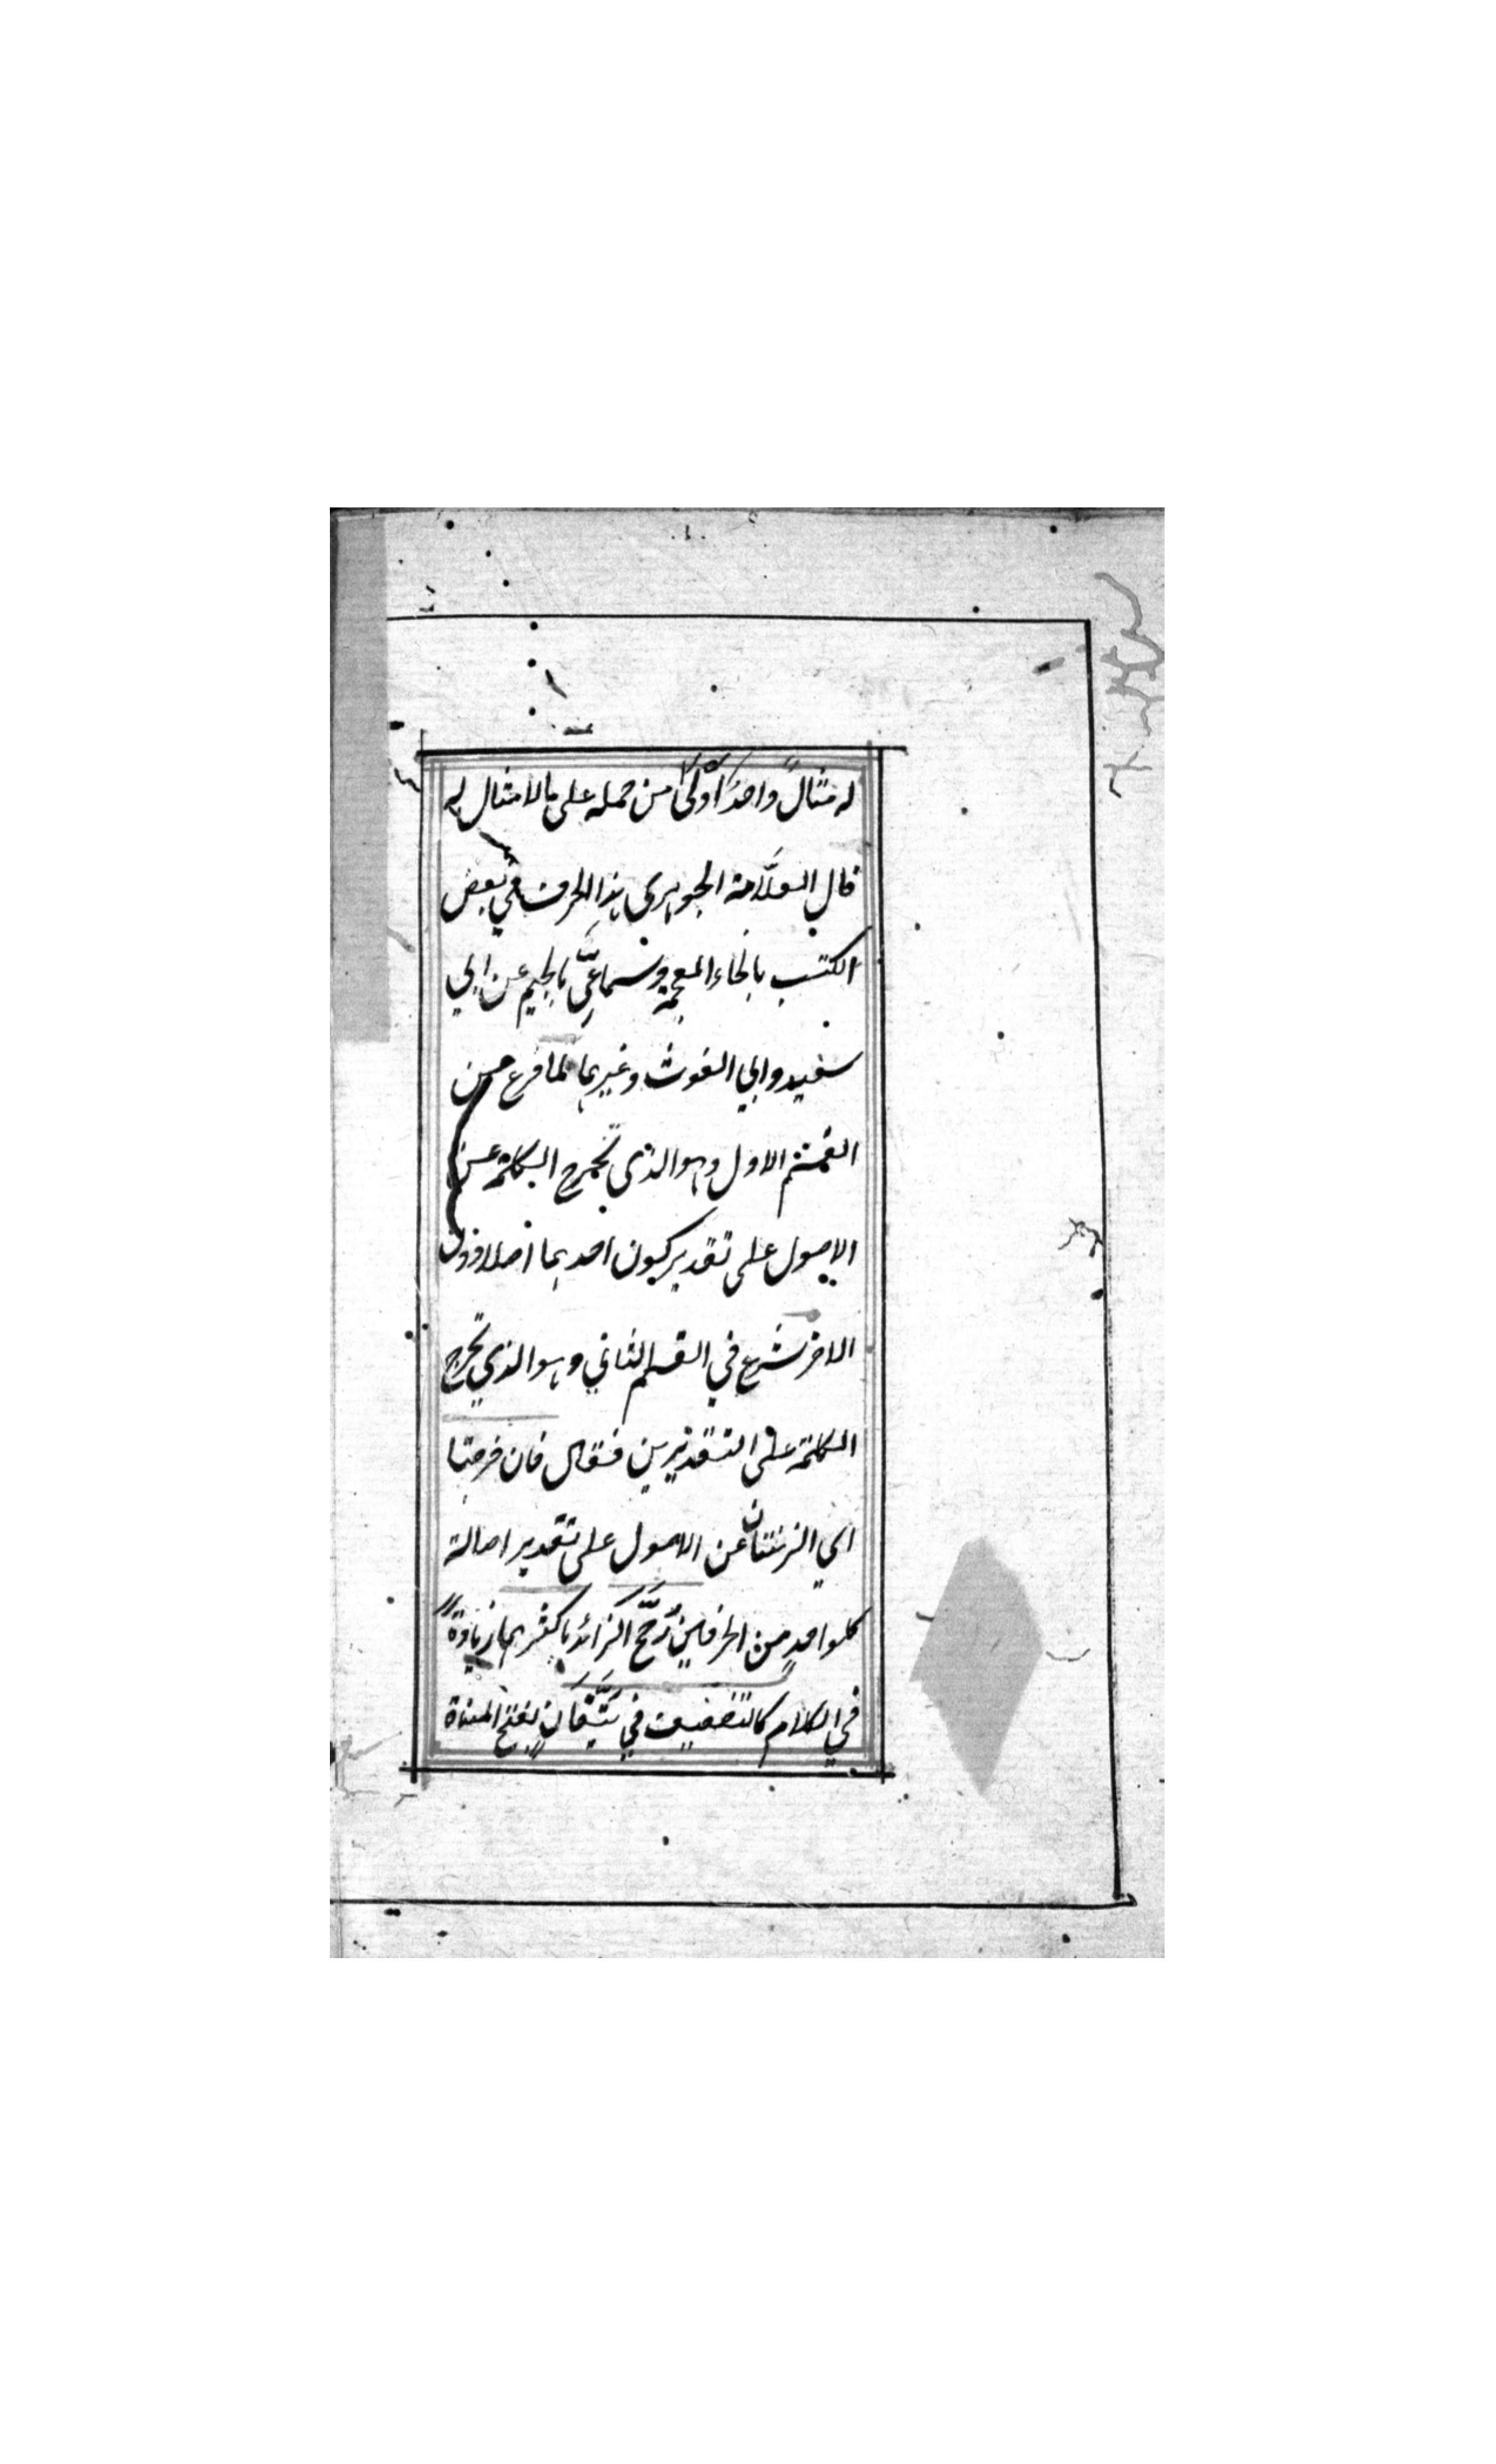 له مثالً واحدً اَولىٰ من حمله على مالا مثال له
قال العلَّامة الجوهرى هذا الحرف في بعض
الكتب بالخاء المعجمة وسماعيّ بالجيم عن ابي
سعيد وابي الغوث وغيرهما لما فرع من
القسم الاول وهو الذى تخرج الكلمة عن
الاصول على تقدير كون احدهما اصلا دون
الاخر شرع في القسم الثاني وهو الذي تخرج
الكلمة على التقديرين فقال فان خرجتا
اي الزنتان عن الاصول على تقدير اصالة
كلواحدٍ من الحرفين رُجّح الزائد باكثرهما زيادةً
في الكلام كالتضعيف في تَئِفَّانٍ بفتح المثناة